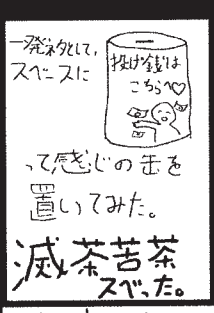 一発ネタとして、
スペースに
投げ銭は
こちらへ♡
って感じの缶を
置いてみた。
滅茶苦茶
スベった。